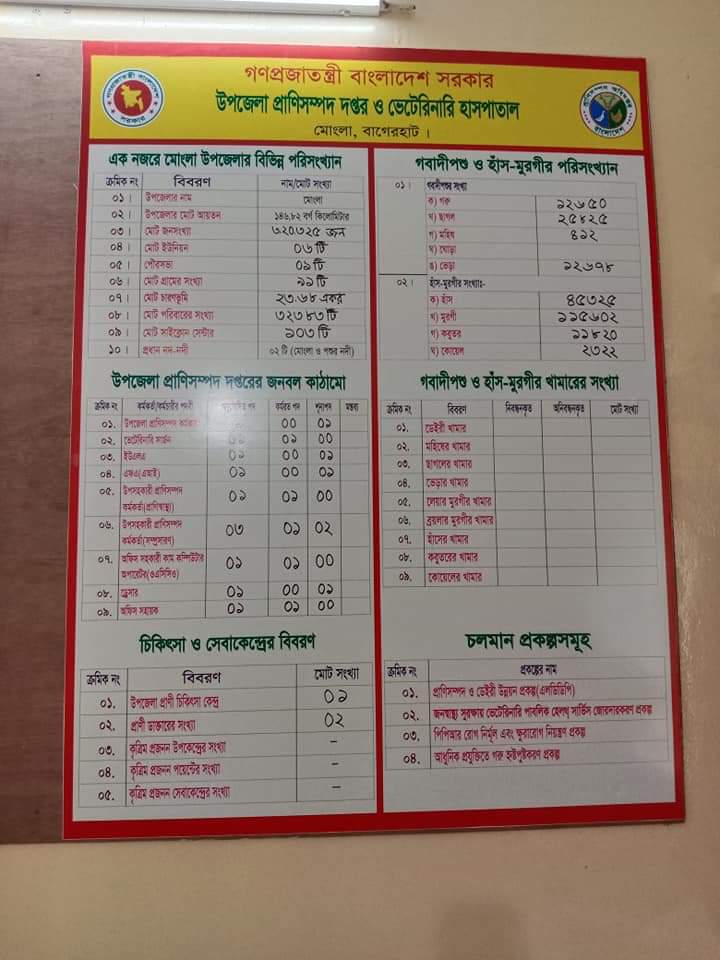 গণপ্রজাতন্ত্রী বাংলাদেশ সরকার
উপজেলা প্রাণিসম্পদ দপ্তর ও ভেটেরিনারি হাসপাতাল
মোংলা, বাগেরহাট ।
এক নজরে মোংলা উপজেলার বিভিন্ন পরিসংখ্যান
ক্রমিক নং বিবরণ নাম/মোট সংখ্যা
০১ । উপজেলার নাম মোংলা
০২ । উপজেলার মোট আয়তন ১৪৬.৮২ বর্গ কিলোমিটার
০৩ । মোট জনসংখ্যা জন
০৪ । মোট ইউনিয়ন ০৬ টি
০৫ । পৌরসভা ০১ টি
০৬ । মোট গ্রামের সংখ্যা ৯১ টি
০৭ । মোট চারণভূমি ২৩.৬৮ একর
০৮ । মোট পরিবারের সংখ্যা ৩২৩৮৩ টি
০৯ । মোট সাইক্লোন সেন্টার ১০৩ টি
১০ । প্রধান নদ-নদী ০২ টি (মোংলা ও পশুর নদী)
উপজেলা প্রাণিসম্পদ দপ্তরের জনবল কাঠামো
ক্রমিক নং কর্মকর্তা/কর্মচারীর পদবী পদ কর্মরত পদ শূন্যপদ মন্তব্য
০১. উপজেলা প্রাণিসম্পদ ০০ ০১
০২. ভেটেরিনারি সার্জন ০১ ০১ ০০
০৩. ইউএলএ ০১ ০০ ০১
০৪. এফএ(এআই) ০১ ০০ ০১
০৫. উপসহকারী প্রাণিসম্পদ কর্মকর্তা(প্রাণিস্বাস্থ্য) ০১ ০১ ০০
০৬. উপসহকারী প্রাণিসম্পদ কর্মকর্তা(সম্প্রসারণ) ০৩ ০১ ০২
০৭. অফিস সহকারী কাম কম্পিউটার অপারেটর(ওএসিসিও) ০১ ০১ ০০
০৮. ড্রেসার ০১ ০০ ০১
০৯. অফিস সহায়ক ০১ ০১ ০০
চিকিৎসা ও সেবাকেন্দ্রের বিবরণ
ক্রমিক নং বিবরণ মোট সংখ্যা
০১. উপজেলা প্রাণী চিকিৎসা কেন্দ্র ০১
০২. প্রাণী ডাক্তারের সংখ্যা ০২
০৩. কৃত্রিম প্রজনন উপকেন্দ্রের সংখ্যা -
০৪. কৃত্রিম প্রজনন পয়েন্টের সংখ্যা -
০৫. কৃত্রিম প্রজনন সেবাকেন্দ্রের সংখ্যা -
গবাদীপশু ও হাঁস-মুরগীর পরিসংখ্যান
০১ । গবাদীপশুর সংখ্যা
ক) গরু ১২৬৫০
খ) ছাগল ২৫৮২৫
গ) মহিষ ৪১২
ঘ) ঘোড়া
ঙ) ভেড়া ১২৬৭৮
০২ । হাঁস-মুরগীর সংখ্যাঃ-
ক) হাঁস ৪৫৩২৫
খ) মুরগী ১১৫৬০২
গ) কবুতর ১১৮২০
ঘ) কোয়েল ২৩২২
গবাদীপশু ও হাঁস-মুরগীর খামারের সংখ্যা
ক্রমিক নং বিবরণ নিবন্ধনকৃত অনিবন্ধনকৃত মোট সংখ্যা
০১. ডেইরী খামার
০২. মহিষের খামার
০৩. ছাগলের খামার
০৪. ভেড়ার খামার
০৫. লেয়ার মুরগীর খামার
০৬. ব্রয়লার মুরগীর খামার
০৭. হাঁসের খামার
০৮. কবুতরের খামার
০৯. কোয়েলের খামার
চলমান প্রকল্পসমূহ
ক্রমিক নং প্রকল্পের নাম
০১. প্রাণিসম্পদ ও ডেইরী উন্নয়ন প্রকল্প(এলডিডিপি)
০২. জনস্বাস্থ্য সুরক্ষায় ভেটেরিনারি পাবলিক হেলথ্ সার্ভিস জোরদারকরণ প্রকল্প
০৩. পিপিআর রোগ নির্মূল এবং ক্ষুরারোগ নিয়ন্ত্রণ প্রকল্প
০৪. আধুনিক প্রযুক্তিতে গরু হৃষ্টপুষ্টকরণ প্রকল্প